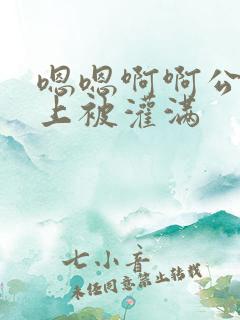 嗯嗯啊啊公
上被灌满
七小音
未经同意禁止转载